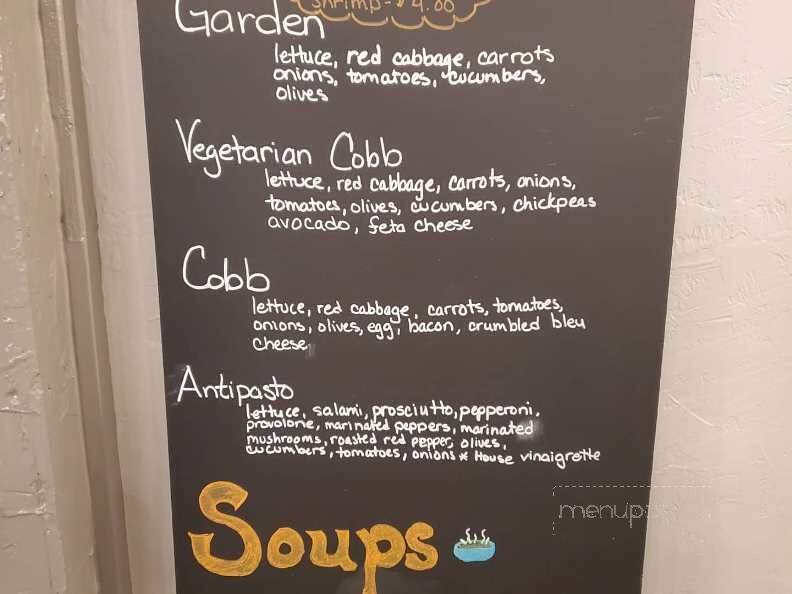 shrimp - $4.00
Garden
lettuce, red cabbage, carrots
onions, tomatoes, cucumbers,
olives
Vegetarian Cobb
lettuce, red cabbage, carrots, onions,
tomatoes, olives, cucumbers, chickpeas
avocado, feta cheese
Cobb
lettuce, red cabbage, carrots, tomatoes,
onions, olives, egg, bacon, crumbled bleu
cheese
Antipasto
lettuce, salami, prosciutto, pepperoni,
provolone, marinated peppers, marinated
mushrooms, roasted red pepper, olives,
cucumbers, tomatoes, onions * House vinaigrette
Soups
menup